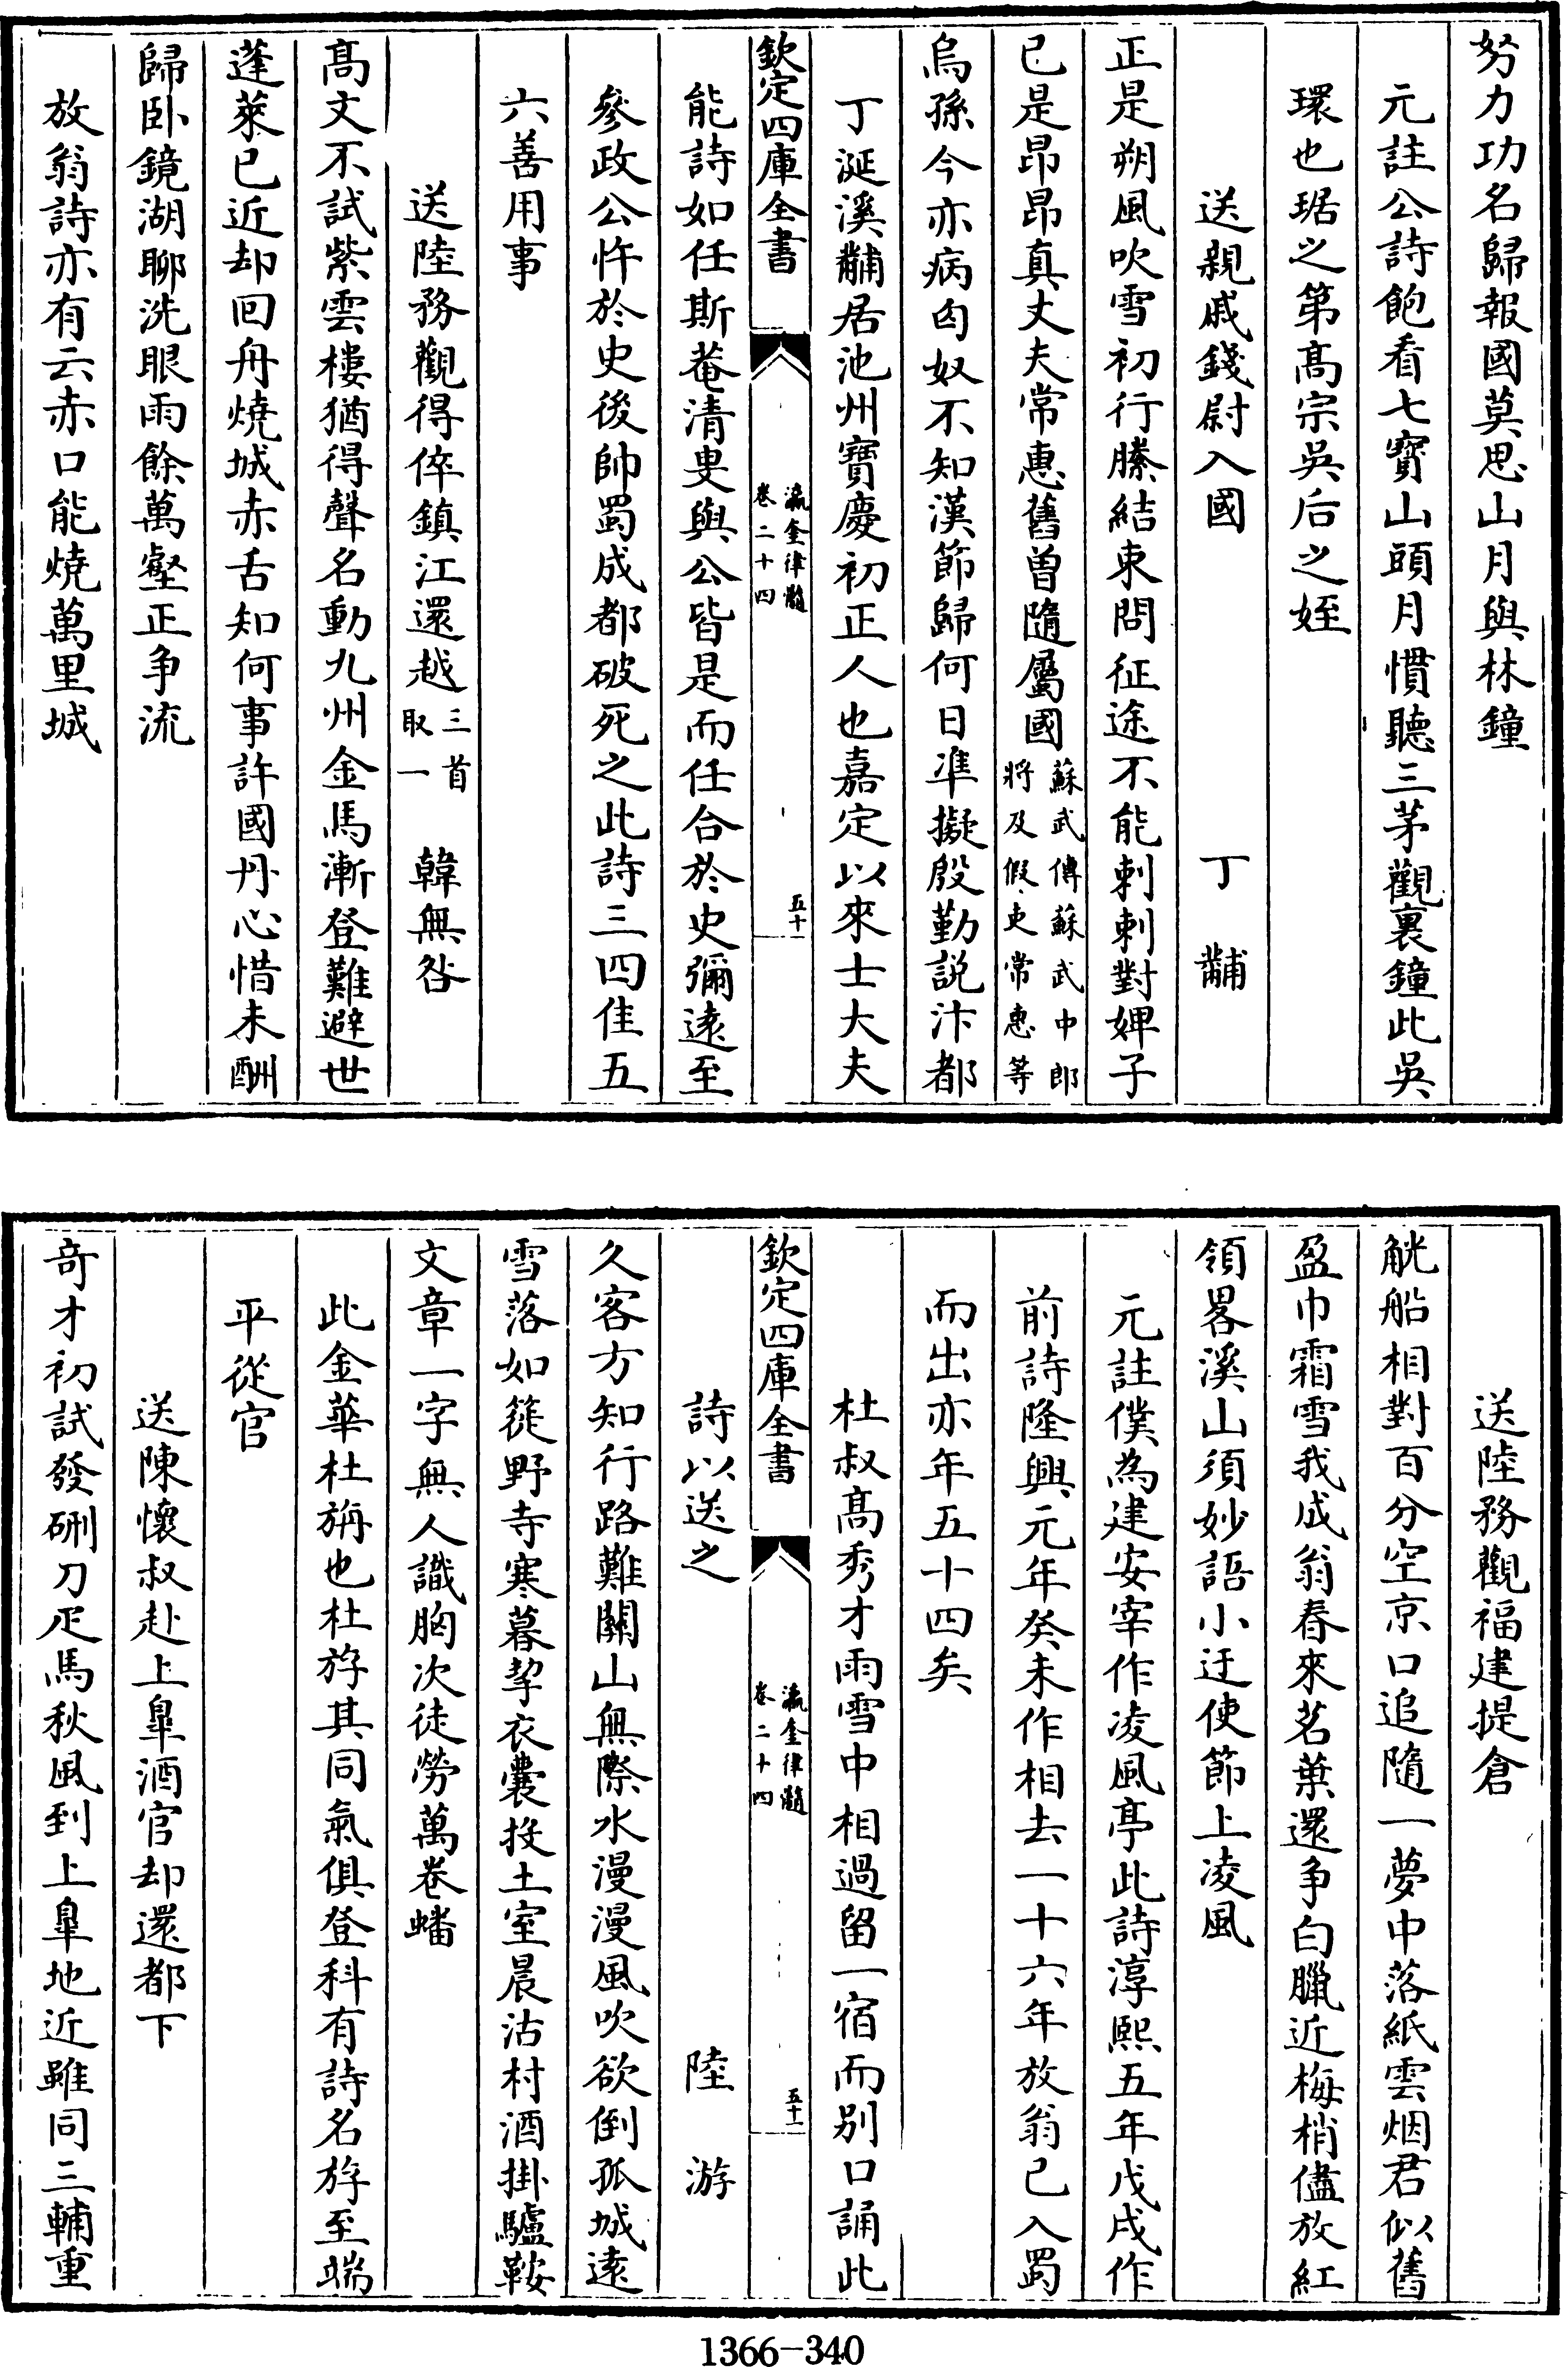 努力功名歸報國莫思山月與林鐘
元註公詩飽看七寳山頭月慣聽三茅觀裏鐘此吳
環也琚之第髙宗吳后之姪
送親戚錢尉入國　丁黼
正是朔風吹雪初行縢結束問征途不能剌剌對婢子
已是昂昂真丈夫常惠舊曾隨屬國蘇武傳蘇武中郎將及假吏常惠等
烏孫今亦病匈奴不知漢節歸何日凖擬殷勤説汴都
丁涎溪黼居池州寳慶初正人也嘉定以來士大夫
欽定四庫全書
瀛奎律髓
卷二十四
五十
能詩如任斯菴清叟與公皆是而任合於史彌逺至
參政公忤於史後帥蜀成都破死之此詩三四佳五
六善用事
送陸務觀得倅鎮江還越三首取一　韓無咎
髙文不試紫雲樓猶得聲名動九州金馬漸登難避世
蓬萊已近却回舟燒城赤舌知何事許國丹心惜未酬
歸卧鏡湖聊洗眼雨餘萬壑正争流
放翁詩亦有云赤口能燒萬里城
送陸務觀福建提倉
觥船相對百分空京口追隨一夢中落紙雲烟君似舊
盈巾霜雪我成翁春來茗葉還爭白臘近梅梢儘放紅
領畧溪山須妙語小迂使節上凌風
元註僕為建安宰作凌風亭此詩淳熙五年戊戌作
前詩隆興元年癸未作相去一十六年放翁已入蜀
而出亦年五十四矣
杜叔髙秀才雨雪中相過留一宿而别口誦此
欽定四庫全書
瀛奎律髓
卷二十四
五十一
詩以送之　陸游
久客方知行路難關山無際水漫漫風吹欲倒孤城逺
雪落如簁野寺寒暮挈衣囊投土室晨沽村酒掛驢鞍
文章一字無人識胸次徒勞萬卷蟠
此金華杜旃也杜斿其同氣俱登科有詩名斿至端
平從官
送陳懷叔赴上皐酒官却還都下
竒才初試發硎刀疋馬秋風到上皐地近雖同三輔重
1366-340